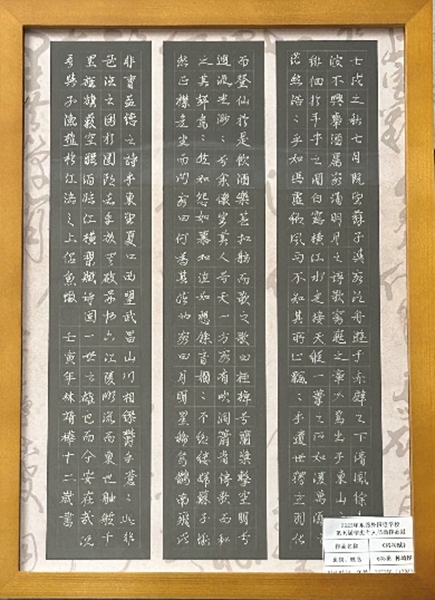 壬戌之秋七月既望蘇子與客泛舟遊于赤壁之下清風徐來水
波不興舉酒屬客誦明月之詩歌窈窕之章少焉月出于東山之上
徘徊於斗牛之間白露橫江水光接天縱一葦之所如凌萬頃之
茫然浩浩乎如馮虛御風而不知其所止飄飄乎如遺世獨立羽化
而登仙於是飲酒樂甚扣舷而歌之歌曰桂棹兮蘭槳擊空明兮
遡流光渺渺兮余懷望美人兮天一方客有吹洞簫者倚歌而和
之其聲嗚嗚然如怨如慕如泣如訴餘音嫋嫋不絕如縷蘇子愀
然正襟危坐而問客曰何為其然也客曰月明星稀烏鵲南飛此
非曹孟德之詩乎東望夏口西望武昌山川相繆鬱乎蒼蒼此非
孟德之困於周郎者乎方其破荊州下江陵順流而東也舳艫千
里旌旗蔽空釃酒臨江橫槊賦詩固一世之雄也而今安在哉況
吾與子漁樵於江渚之上侶魚蝦 壬寅年林靖樺十二歲書
作品名称
班别、姓名